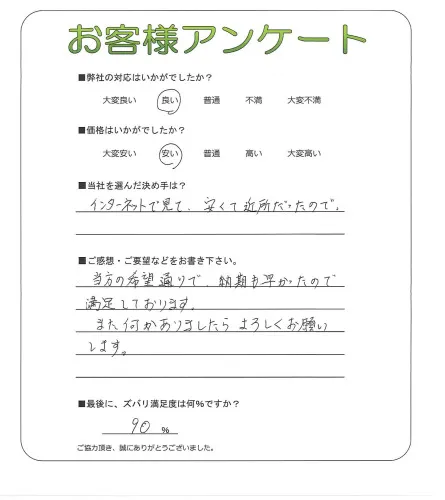 お客様アンケート
■弊社の対応はいかがでしたか?
大変良い 良い 普通 不満 大変不満
■価格はいかがでしたか?
大変安い 安い 普通 高い 大変高い
■当社を選んだ決め手は?
インターネットで見て、安くて近所だったので。
■ご感想・ご要望などをお書き下さい。
当方の希望通りで、納期も早かったので
満足しております。
また何かありましたらよろしくお願い
します。
■最後に、ズバリ満足度は何%ですか?
90 %
ご協力頂き、誠にありがとうございました。